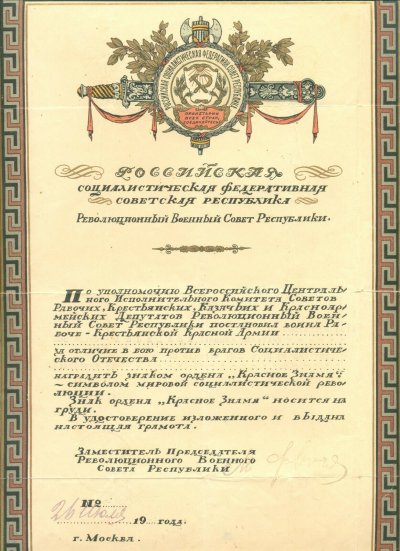 РОССИЙСКАЯ СОЦИАЛИСТИЧЕСКАЯ ФЕДЕРАТИВНАЯ СОВЕТСКАЯ РЕСПУБЛИКА
ПРОЛЕТАРИИ
ВСЕХ СТРАН,
СОЕДИНЯЙТЕСЬ!
РОССИЙСКАЯ
СОЦИАЛИСТИЧЕСКАЯ ФЕДЕРАТИВНАЯ
СОВЕТСКАЯ РЕСПУБЛИКА
Революционный Военный Совет Республики.
По уполномочию Всероссийского Централь-
ного Исполнительного Комитета Советов
Рабочих, Крестьянских, Казачьих и Красноар-
мейских Депутатов Революционный Воен-
ный Совет Республики постановил воина Ра-
боче-Крестьянской Красной Армии
за отличие в бою против врагов Социалистиче-
ского Отечества
наградить знаком ордена „Красное Знамя“
— символом мировой социалистической рево-
люции.
Знак ордена „Красное Знамя“ носится на
груди.
В удостоверение изложенного и выдана
настоящая грамота.
Заместитель Председателя
Революционного Военного
Совета Республики
№
26
19 года.
г. Москва.